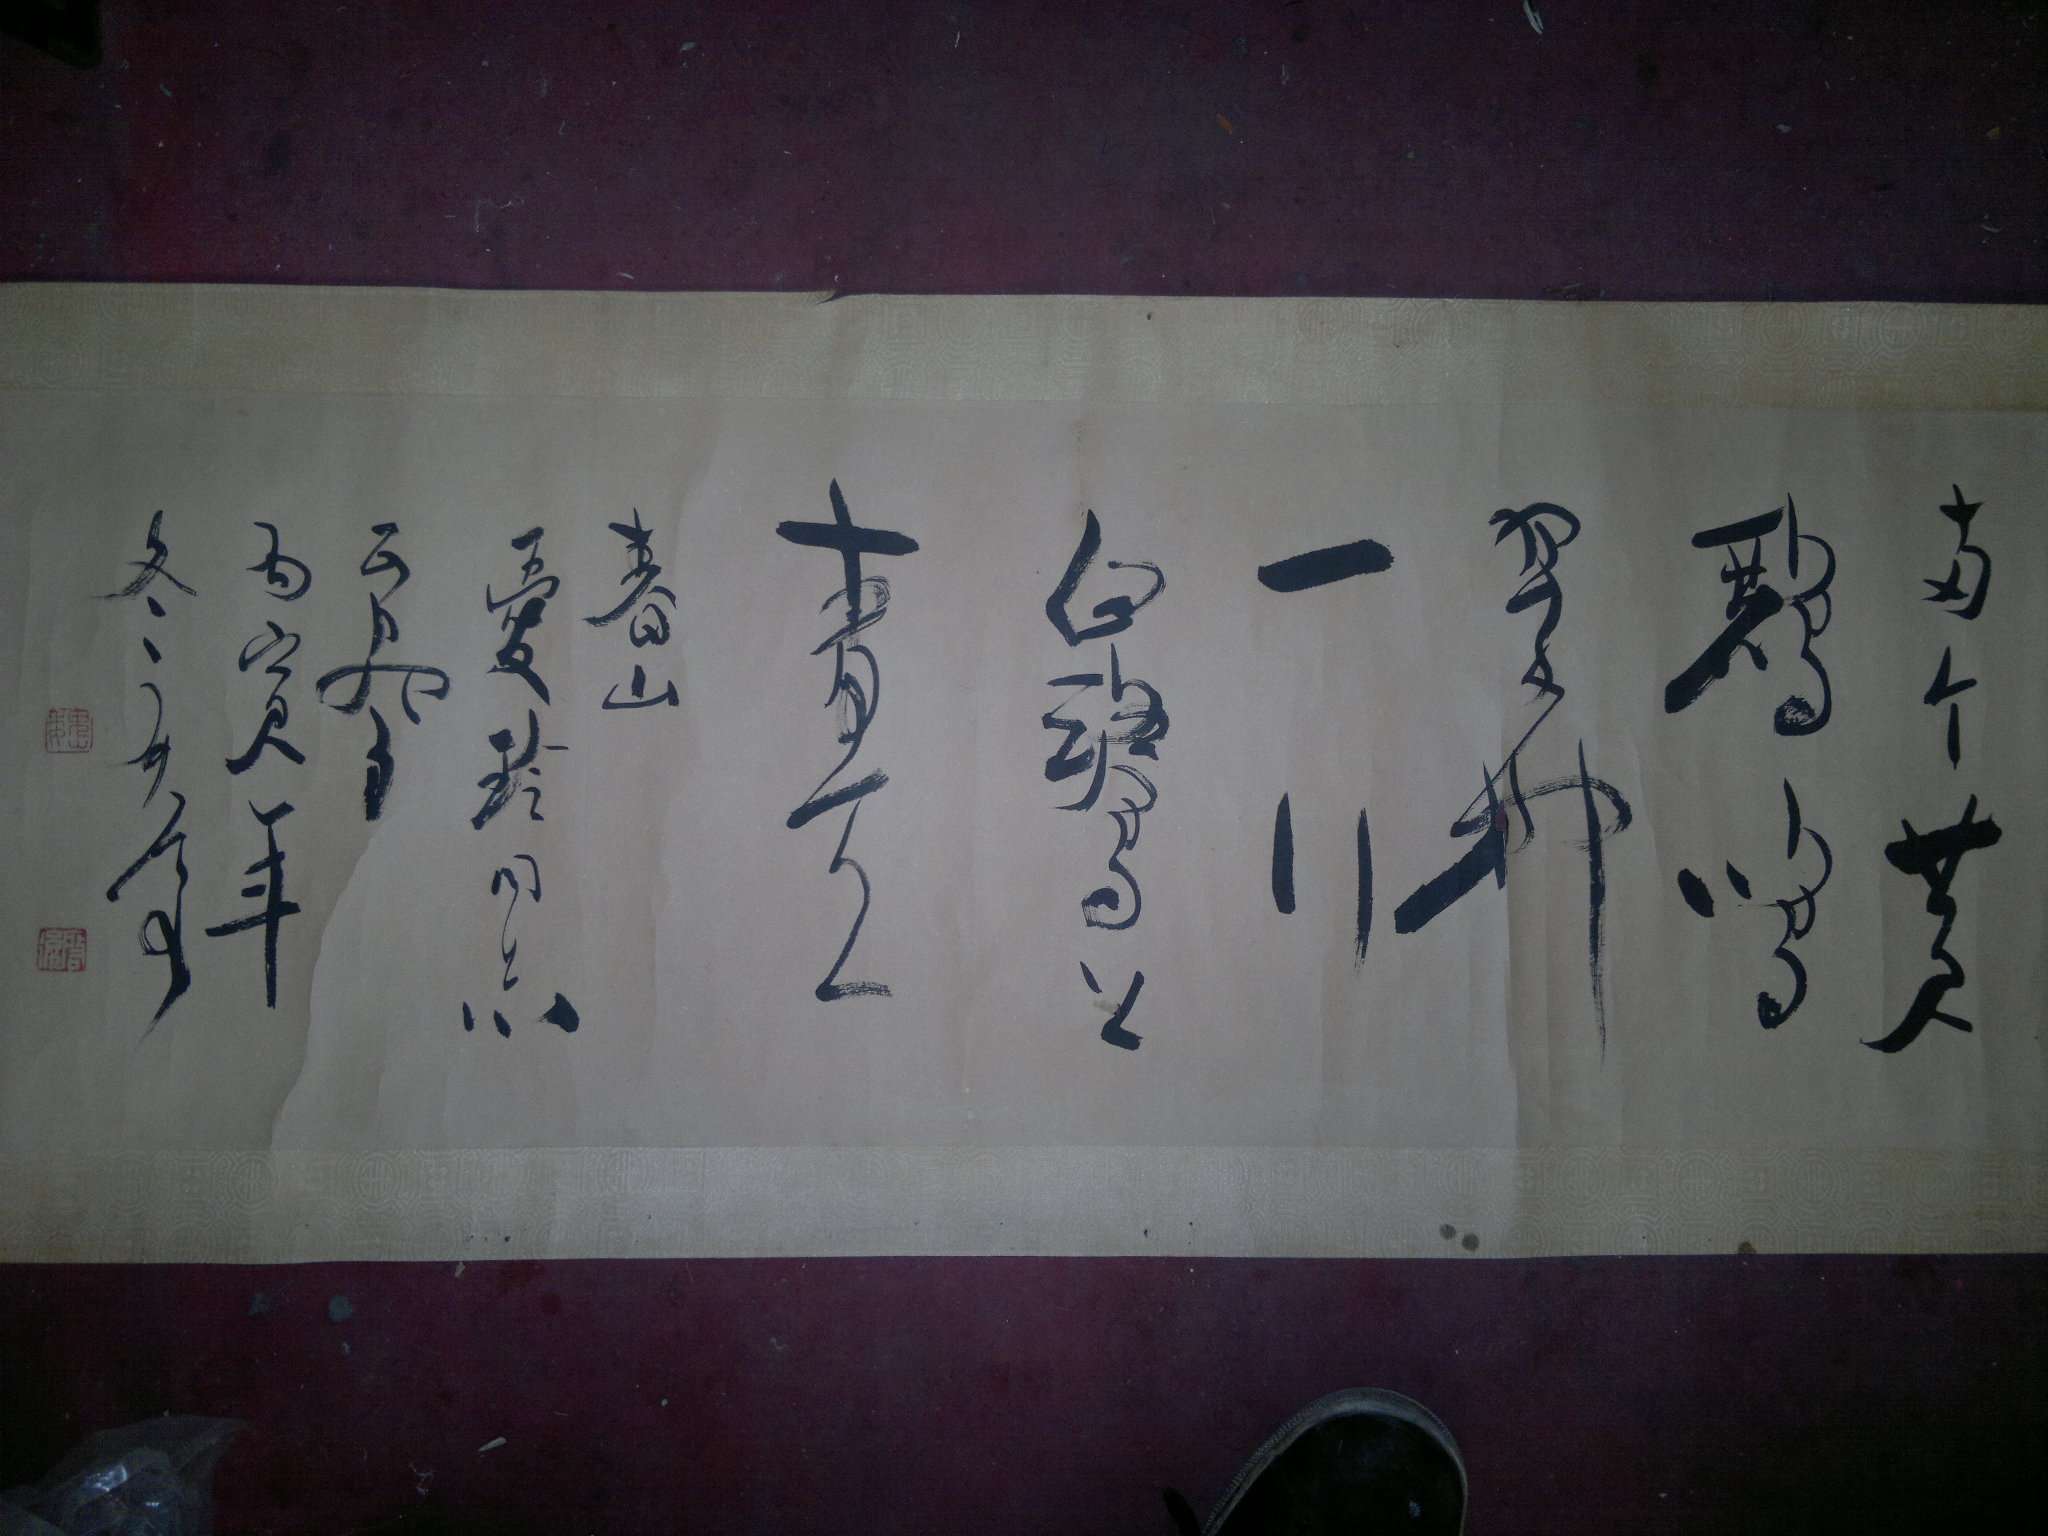 两个黄
鹂鸣
翠柳
一行
白鹭上
青天
春山
爱玲同志
正
丙寅年
冬